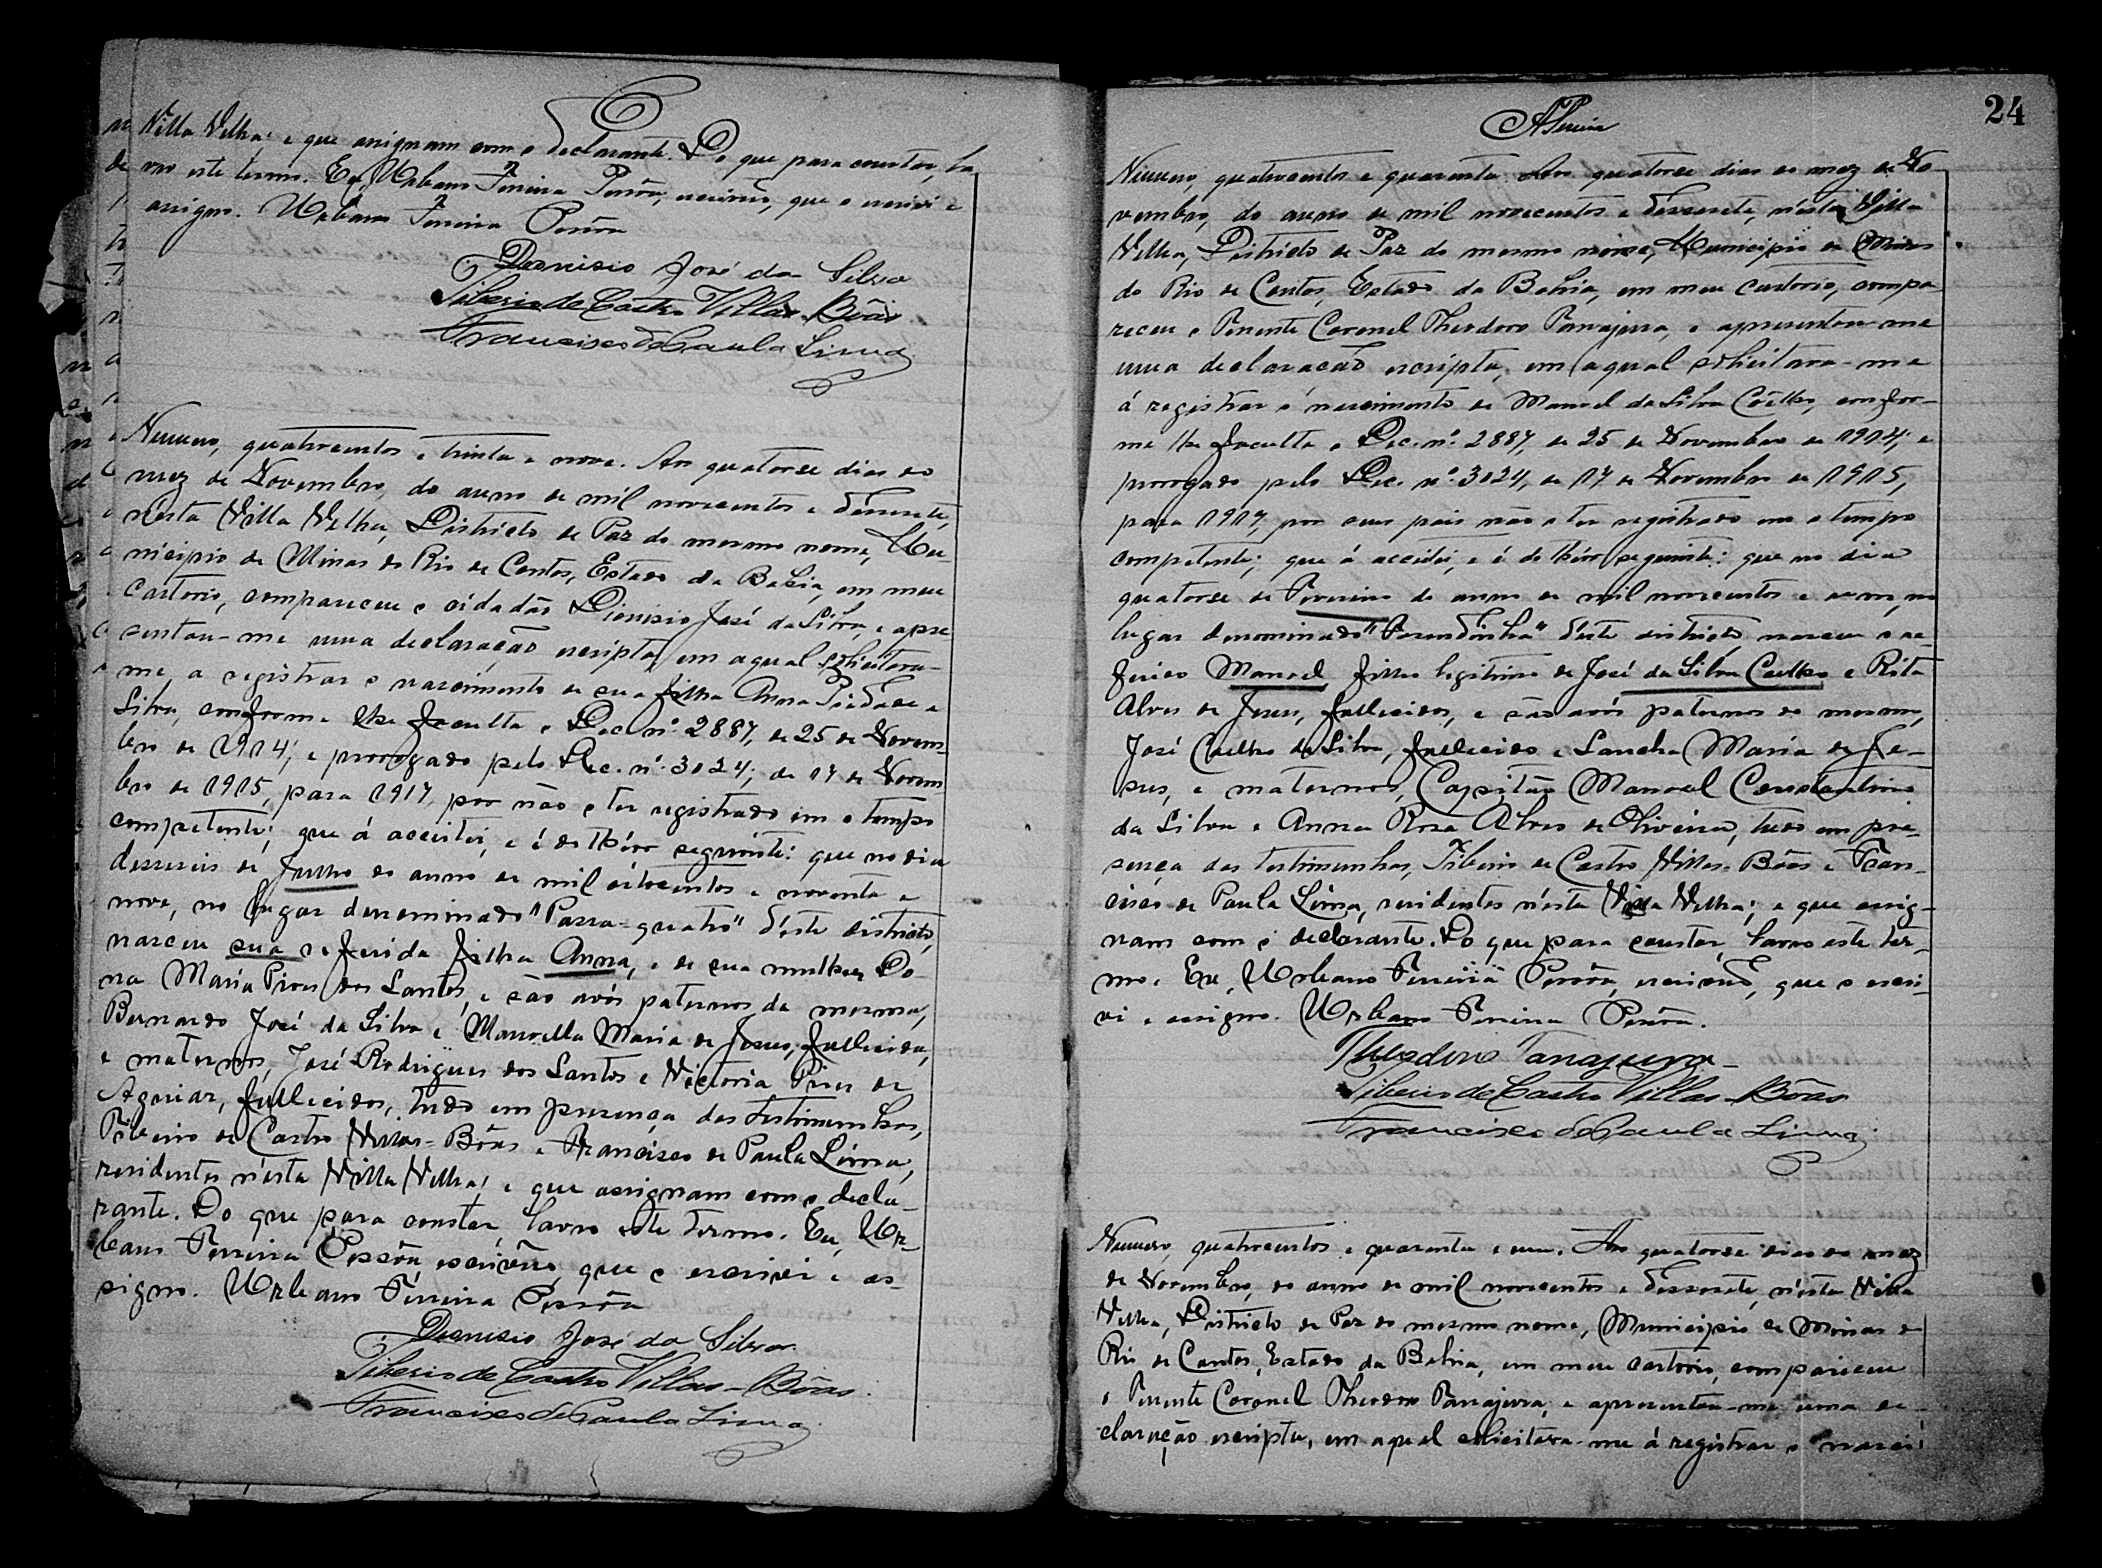 Villa Velha; e que assignam com o declarante. Do que para constar, la
vro este termo. Eu, Urbano Ferreira Pessôa, escrivão, que o escrivi e
assigno. Urbano Ferreira Pessôa
Dionisio José da Silva
Tiberio de Castro Villas-Bôas
Francisco de Paula Lima
Numero, quatrocentos e trinta e nove. Aos quatorse dias do
mez de Novembro, do anno de mil novecentos e dessesete,
n'esta Villa Velha, Districto de Paz do mesmo nome, Mu-
nicipio de Minas do Rio de Contas, Estado da Bahia, em meu
Cartorio, compareceu o cidadão Dionisio José da Silva, e apre
sentou-me uma declaração escripta, em a qual solicitava-
me, a registrar o nascimento de sua filha Anna Piedade e
Silva, conforme lhe faculta o Dec. nº 2887, de 25 de Novem-
bro de 1914; e prorogado pelo Dec. nº 3024, de 17 de Novem
bro de 1915, para 1917, por não o ter registrado em o tempo
competente; que á acceitei, e é do theôr seguinte: que no dia
desseseis de Julho do anno de mil oitocentos e noventa e
nove, no lugar denominado "Passa-quatro" d'este districto,
nasceu sua referida filha Anna, e de sua mulher Do-
na Maria Pires dos Santos, e são avós paternos da mesma,
Bernardo José da Silva e Manoella Maria de Jesus, fallecida,
e maternos, José Rodrigues dos Santos e Victoria Pires de
Aguiar, fallecidos, tudo em presença das testimunhas,
Tiberio de Castro Villas-Bôas e Francisco de Paula Lima,
residentes n'esta Villa Velha; e que assignam com o decla-
rante. Do que para constar, lavro este termo. Eu, Ur-
bano Ferreira Pessôa escrivão, que o escrivi e as-
signo. Urbano Ferreira Pessôa
Dionisio José da Silva
Tiberio de Castro Villas-Bôas
Francisco de Paula Lima
24
Numero, quatrocentos e quarenta. Aos quatorse dias do mez de No
vembro, do anno de mil novecentos e dessesete, n'esta Villa
Velha, Districto de Paz do mesmo nome, Municipio de Minas
do Rio de Contas, Estado da Bahia, em meu cartorio, compa
receu o Tenente Coronel Theodoro Tanajura, e apresentou-me
uma declaração escripta, em a qual solicitava-me
á registrar o nascimento de Manoel da Silva Coêlho, confor-
me lhe faculta o Dec. nº 2887, de 25 de Novembro de 1914; e
prorogado pelo Dec. nº 3024, de 17 de Novembro de 1915,
para 1917, por seus pais não o ter registrado em o tempo
competente; que á acceitei, e é do theôr seguinte: que no dia
quatorse de do anno de mil novecentos e no
lugar denominado d'este districto, nasceu o re
ferido Manoel filho legitimo de José da Silva Coelho e Rita
Alves de Jesus, fallecidos, e são avós paternos do mesmo,
José Coelho da Silva, fallecido e Sancha Maria de Je-
sus, e maternos, Capitão Manoel Constantino
da Silva e Anna Rosa Alves de Oliveira, tudo em pre-
sença das testimunhas, Tiberio de Castro Villas-Bôas e Fran-
cisco de Paula Lima, residentes n'esta Villa Velha; e que assig-
nam com o declarante. Do que para constar, lavro este ter-
mo. Eu, Urbano Ferreira Pessôa, escrivão, que o escri-
vi e assigno. Urbano Ferreira Pessôa.
Theodoro Tanajura
Tiberio de Castro Villas-Bôas
Francisco de Paula Lima
Numero, quatrocentos e quarenta e um. Aos quatorse dias do mez
de Novembro, do anno de mil novecentos e dessesete, n'esta Villa
Velha, Districto de Paz do mesmo nome, Municipio de Minas do
Rio de Contas, Estado da Bahia, em meu cartorio, compareceu
o Tenente Coronel Theodoro Tanajura, e apresentou-me uma de-
claração escripta, em a qual solicitava-me á registrar o nasci